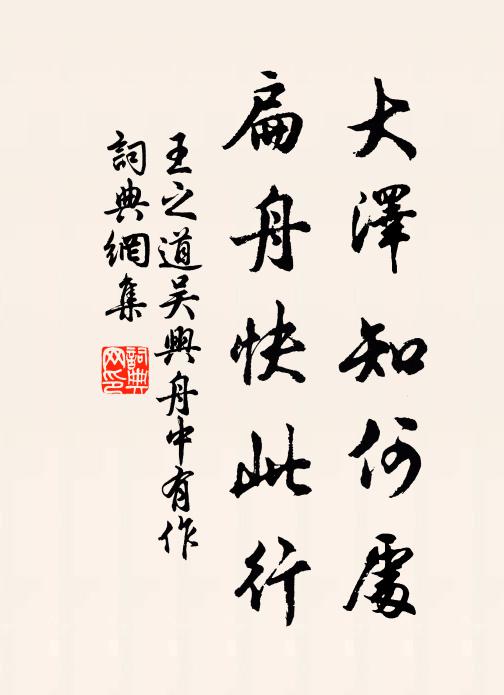 大澤知何處
扁舟快此行
王之道吴興舟中有作
詞典網集
詞典網印